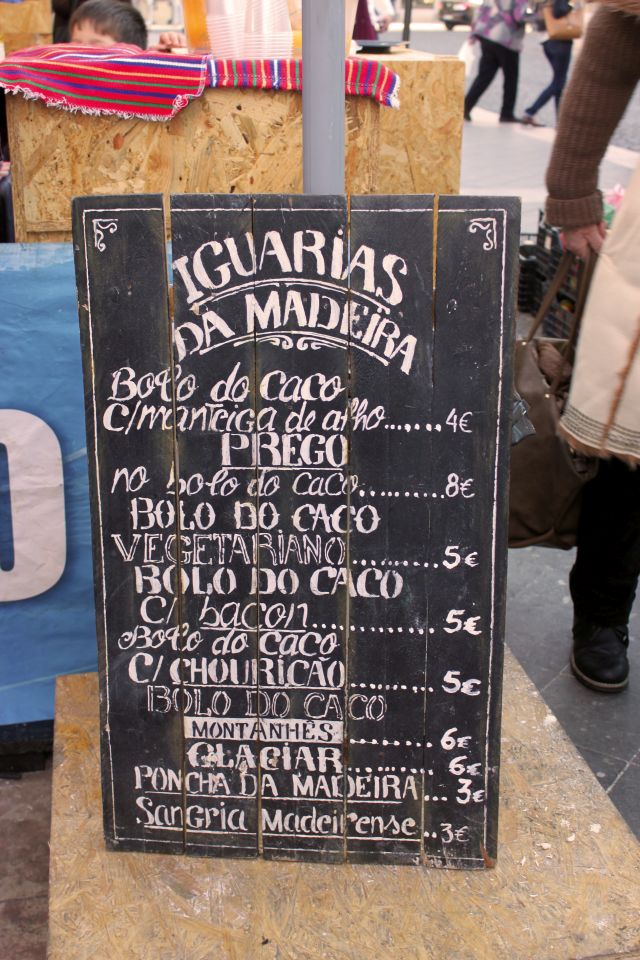 IGUARIAS
DA MADEIRA
Bolo do caco
C/manteiga de alho......... 4€
PREGO
no bolo do caco.......... 8€
BOLO DO CACO
VEGETARIANO.............. 5€
BOLO DO CACO
C/ bacon.................. 5€
Bolo do caco
C/ CHOURICÃO............ 5€
BOLO DO CACO
MONTANHÊS............ 6€
GLACIAR............ 6€
PONCHA DA MADEIRA... 3€
Sangria Madeirense.. 3€